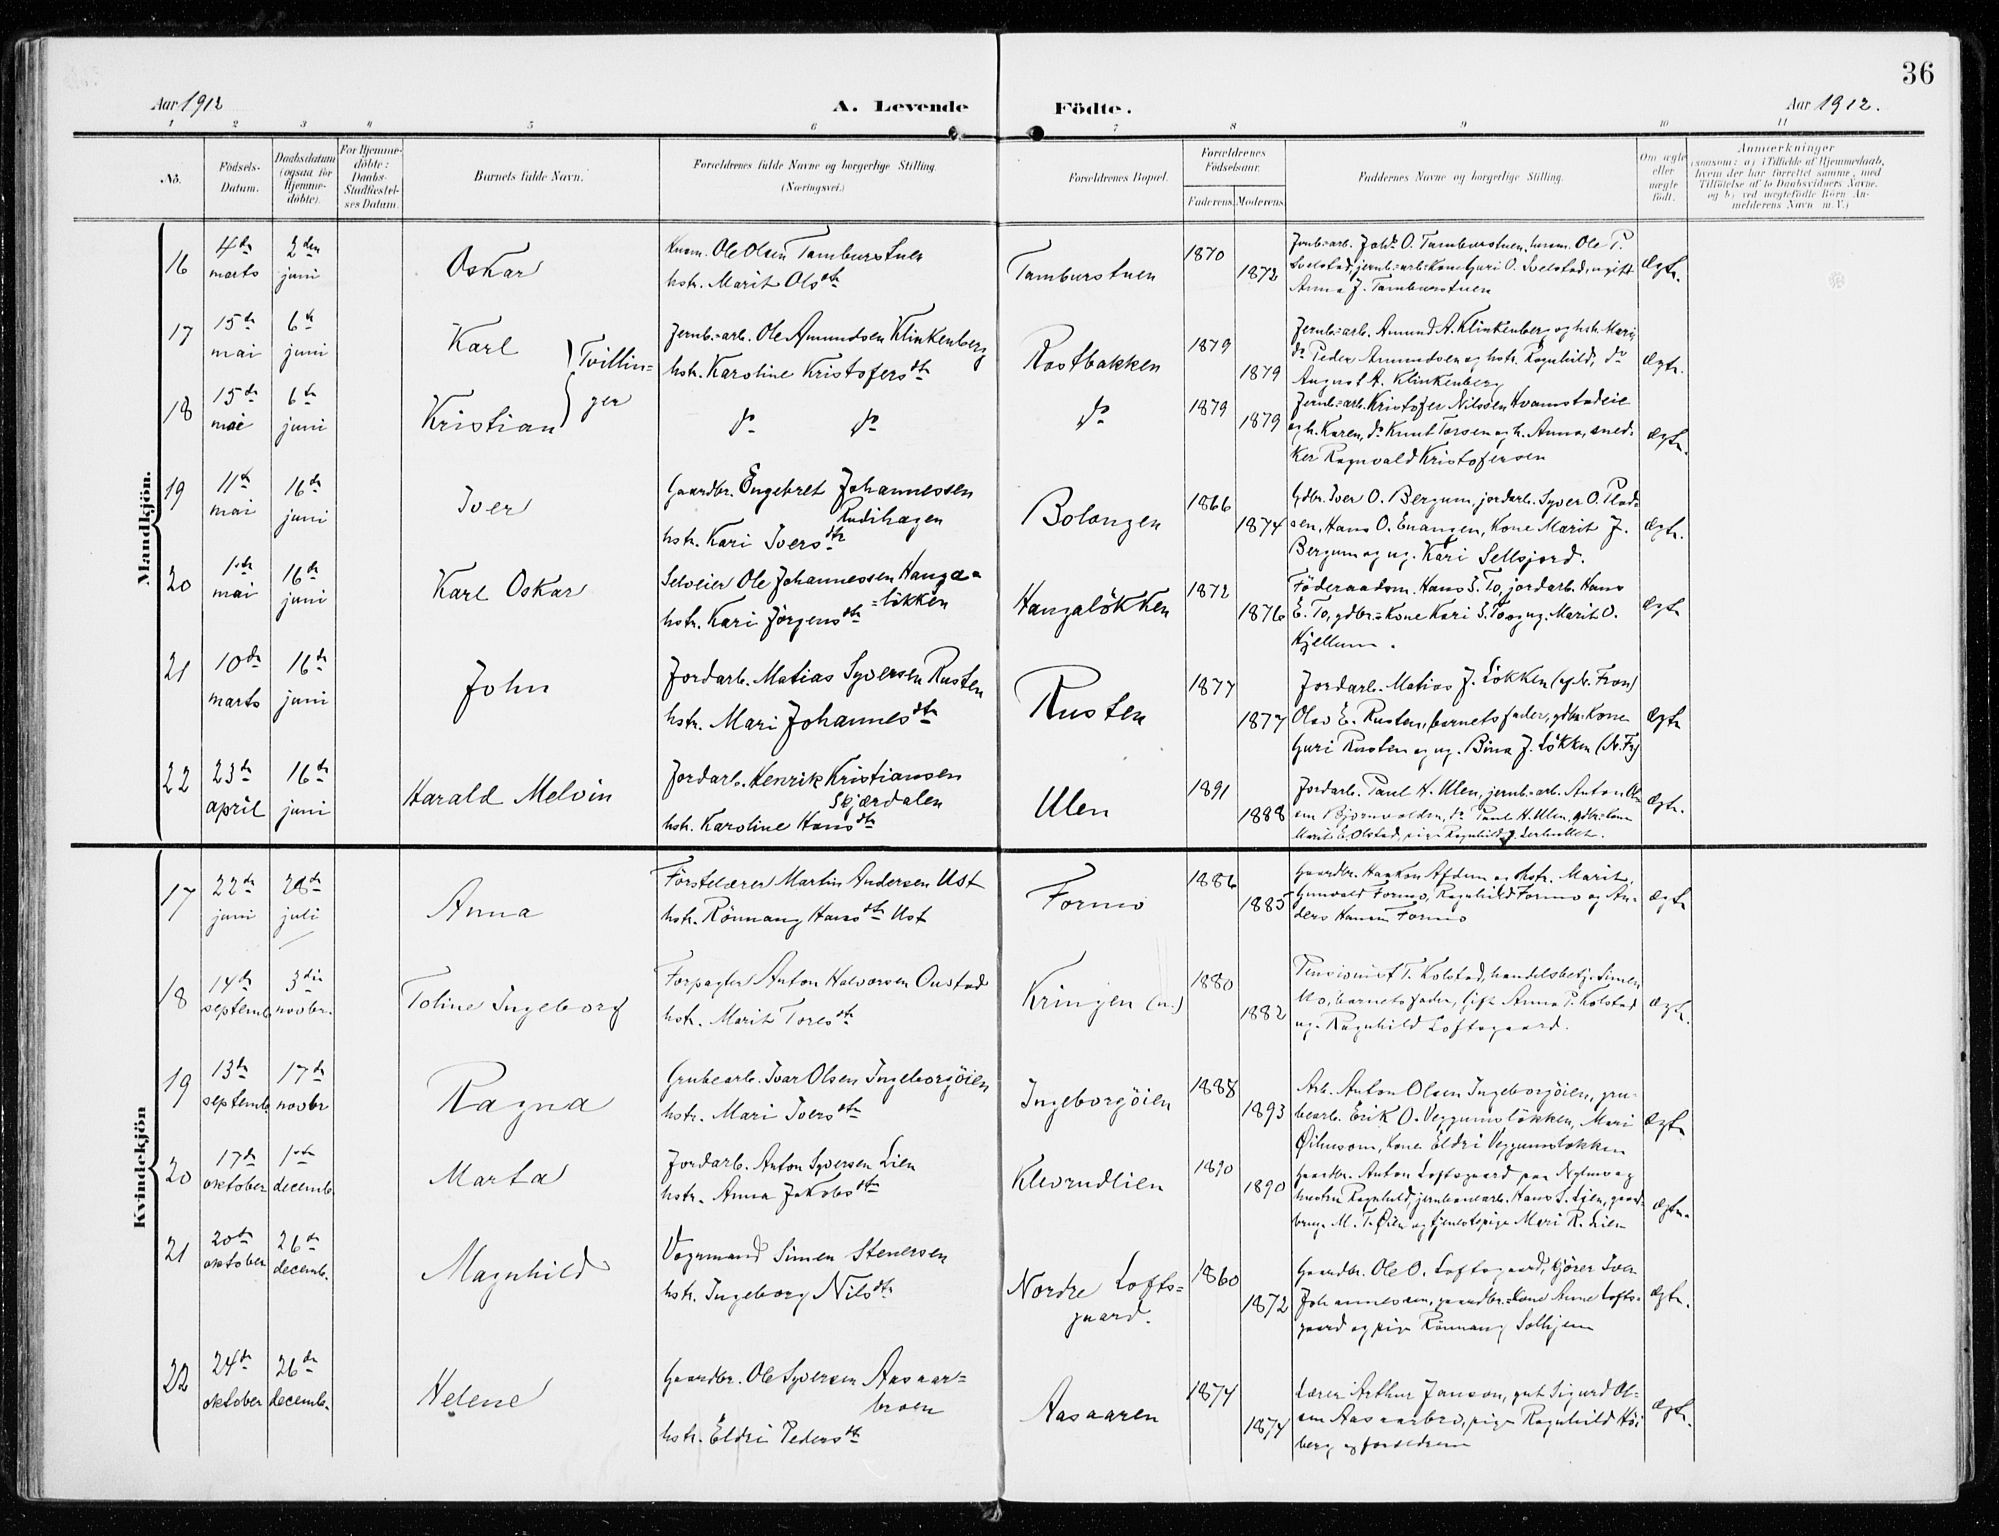 36
Aar 1912
A. Levende Födte.
Aar 1912.
1 2 3 4 5 6 7 8 9 10 11
No.
Födsels-Datum.
Daabsdatum (ogsaa for Hjemmedöbte).
For Hjemmedöbte: Daabs-Stadfæstelses Datum.
Barnets fulde Navn.
Forældrenes fulde Navne og borgerlige Stilling.
(Næringsvei.)
Forældrenes Bopæl.
Forældrenes Födselsaar.
Faderens. Moderens.
Faddernes Navne og borgerlige Stilling.
Om ægte eller uægte födt.
Anmærkninger
(saasom: a) i Tilfælde af Hjemmedaab, hvem der har forrettet samme, med Tilföielse af to Daabsvidners Navne. og b) ved uægtefødte Börn Anmelderens Navn m. V.)
Mandkjön.
16 4de marts 2den juni Oskar
Ole Olsen Tamburstuen
hstr. Marit Olsdtr
Tamburstuen 1870 1872
Anna J. Tamburstuen
Ægte.
17 15de mai 6te juni Karl
Tvillinger
Jernb.=arb. Ole Amundsen Klinkenberg
hstr. Karoline Kristofersdtr
Rostbakken 1879 1879
Jernb.=arb. Amund A. Klinkenberg og hstr. Mari,
do Peder Amundsen og hstr. Ragnhild, do
August A. Klinkenberg
Ægte.
18 15de mai 6te juni Kristian
do do
do 1879 1879
Jernb.=arb. Kristofer Nilssen Hvamstadeie
og h. Karen, do Knut Torsen og h. Anna, sned-
ker Ragnvald Kristofersen
Ægte.
19 11te mai 16de juni Iver
Gaardbr. Engebret Johannessen
Rudihagen
hstr. Kari Iversdtr
Bolongen 1866 1874
Gdbr. Iver O. Bergum, jordarb. Syver O.
Hans O. Enangen, Kone Marit J.
Bergum og ug. Kari Sellsjord.
Ægte.
20 1ste mai 16de juni Karl Oskar
Selveier Ole Johannessen Hanga=
=løkken
hstr. Kari Jørgensdtr
Hangaløkken 1872 1876
Föderaadsm. Hans E. To, jordarb. Hans
E. To, gdbr.=Kone Kari E. To og ug. Marit O.
Kjellum.
Ægte
21 10de marts 16de juni John
Jordarb. Matias Syversen Rusten
hstr. Mari Johannesdtr
Rusten 1877 1877
Jordarb. Matias J. Løkken (af N. Fron)
Olav E. Rusten, barnets fader, gdbr. Kone
Guri Rusten og ug. Bina J. Løkken (N. Fr)
Ægte
22 23de april 16de juni Harald Melvin
Jordarb. Henrik Kristiansen
Skjærdalen
hstr. Karoline Hansdtr
Ulen 1891 1888
Jordarb. Paul H. Ulen, jernb.=arb. Anton Ol-
sen Bjørnvolden, do Paul H. Ulen, gdbr.=Kone
Marit E. Olstad, pige Ragnhild
Ægte.
Kvindekjön
17 22de juni 28de juli Anna
Førstelærer Martin Andersen Ust
hstr. Rönnaug Hansdtr Ust
Formo 1886 1885
Gaardbr. Haakon Afdem og hstr. Marit,
Gunvald Formo, Ragnhild Formo og An-
ders Hansen Formo
Ægte
18 14de septemb. 3die novbr. Toline Ingeborg
Forpagter Anton Halvorsen Onstad
hstr. Marit Toresdtr
Kringen (n.) 1880 1882
Pensionist T. Kolstad, handelsbetj. Simen
Mo, barnets fader, Anna P. Kolstad
ug. Ragnhild Loftsgaard.
Ægte.
19 13de septemb. 17de novbr Ragna
Grubearb. Ivar Olsen Ingeborgöien
hstr. Mari Iversdtr
Ingeborgöien 1888 1893
Arb. Anton Olsen Ingeborgöien, gru-
bearb. Erik O. Veggumsløkken, Mari
Kone Eldri Veggumsløkken
Ægte
20 17de oktober 1ste decemb. Marta
Jordarb. Anton Syversen Lien
hstr. Anna Jakobsdtr
Klevrudlien 1890 1890
Gaardbr. Anton Loftsgaard paa
hustru Ragnhild, jernbanearb. Hans S. Lien, gaard-
brug. M. T. Øien og tjenestepige Mari R. Lien
Ægte.
21 20de oktober 26de decemb. Magnhild
Vognmand Simen Stenersen
hstr. Ingeborg Nilsdtr
Nordre Lofts=
gaard. 1860 1872
Gaardbr. Ole O. Loftsgaard, kjörer Iver
Johannessen, gaardbr.=Kone Anne Lofts-
gaard og pige Rönnaug Solhjem
Ægte.
22 24de oktober 26de decemb. Helene
Gaardbr. Ole Syversen Aasaar=
broen
hstr. Eldri Pedersdtr
Aasaaren 1874 1874
Lærer Arthur Janson, gut Sigurd Ol-
sen Aasaarbro, pige Ragnhild Høi
berg og forældrene
Ægte.